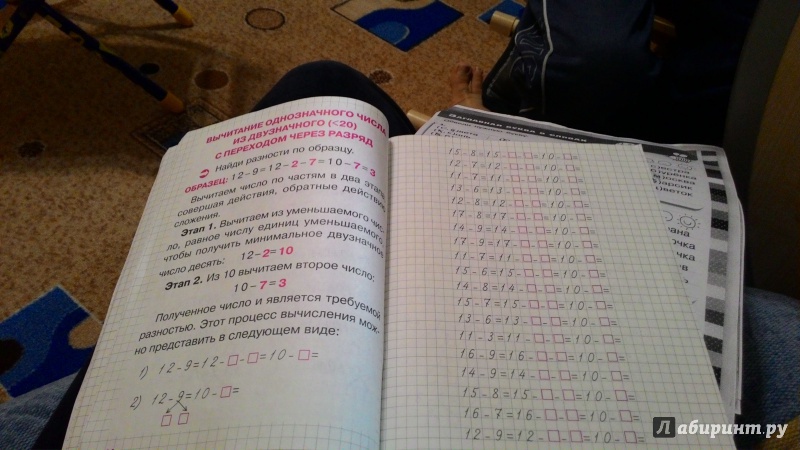 ВЫЧИТАНИЕ ОДНОЗНАЧНОГО ЧИСЛА
ИЗ ДВУЗНАЧНОГО (<20)
С ПЕРЕХОДОМ ЧЕРЕЗ РАЗРЯД
Найди разности по образцу.
ОБРАЗЕЦ: 12-9=12-2-7=10-7=3
Вычитаем число по частям в два этапа,
совершая действия, обратные действию
сложения.
Этап 1. Вычитаем из уменьшаемого чис-
ло, равное числу единиц уменьшаемого,
чтобы получить минимальное двузначное
число десять: 12-2=10
Этап 2. Из 10 вычитаем второе число:
10-7=3
Полученное число и является требуемой
разностью. Этот процесс вычисления мож-
но представить в следующем виде:
1) 12-9=12-□-□=10-□=
2) 12-9=10-□=
□ □
15-8=15-□-□=10-□=
12-7=12-□-□=10-□=
11-7=11-□-□=10-□=
13-6=13-□-□=10-□=
12-8=12-□-□=10-□=
17-8=17-□-□=10-□=
14-9=14-□-□=10-□=
17-9=17-□-□=10-□=
11-7=11-□-□=10-□=
15-6=15-□-□=10-□=
14-8=14-□-□=10-□=
15-7=15-□-□=10-□=
13-6=13-□-□=10-□=
11-3=11-□-□=10-□=
16-9=16-□-□=10-□=
14-9=14-□-□=10-□=
15-8=15-□-□=10-□=
16-7=16-□-□=10-□=
12-9=12-□-□=10-□=
Заглавная буква в
Лабиринт.ру